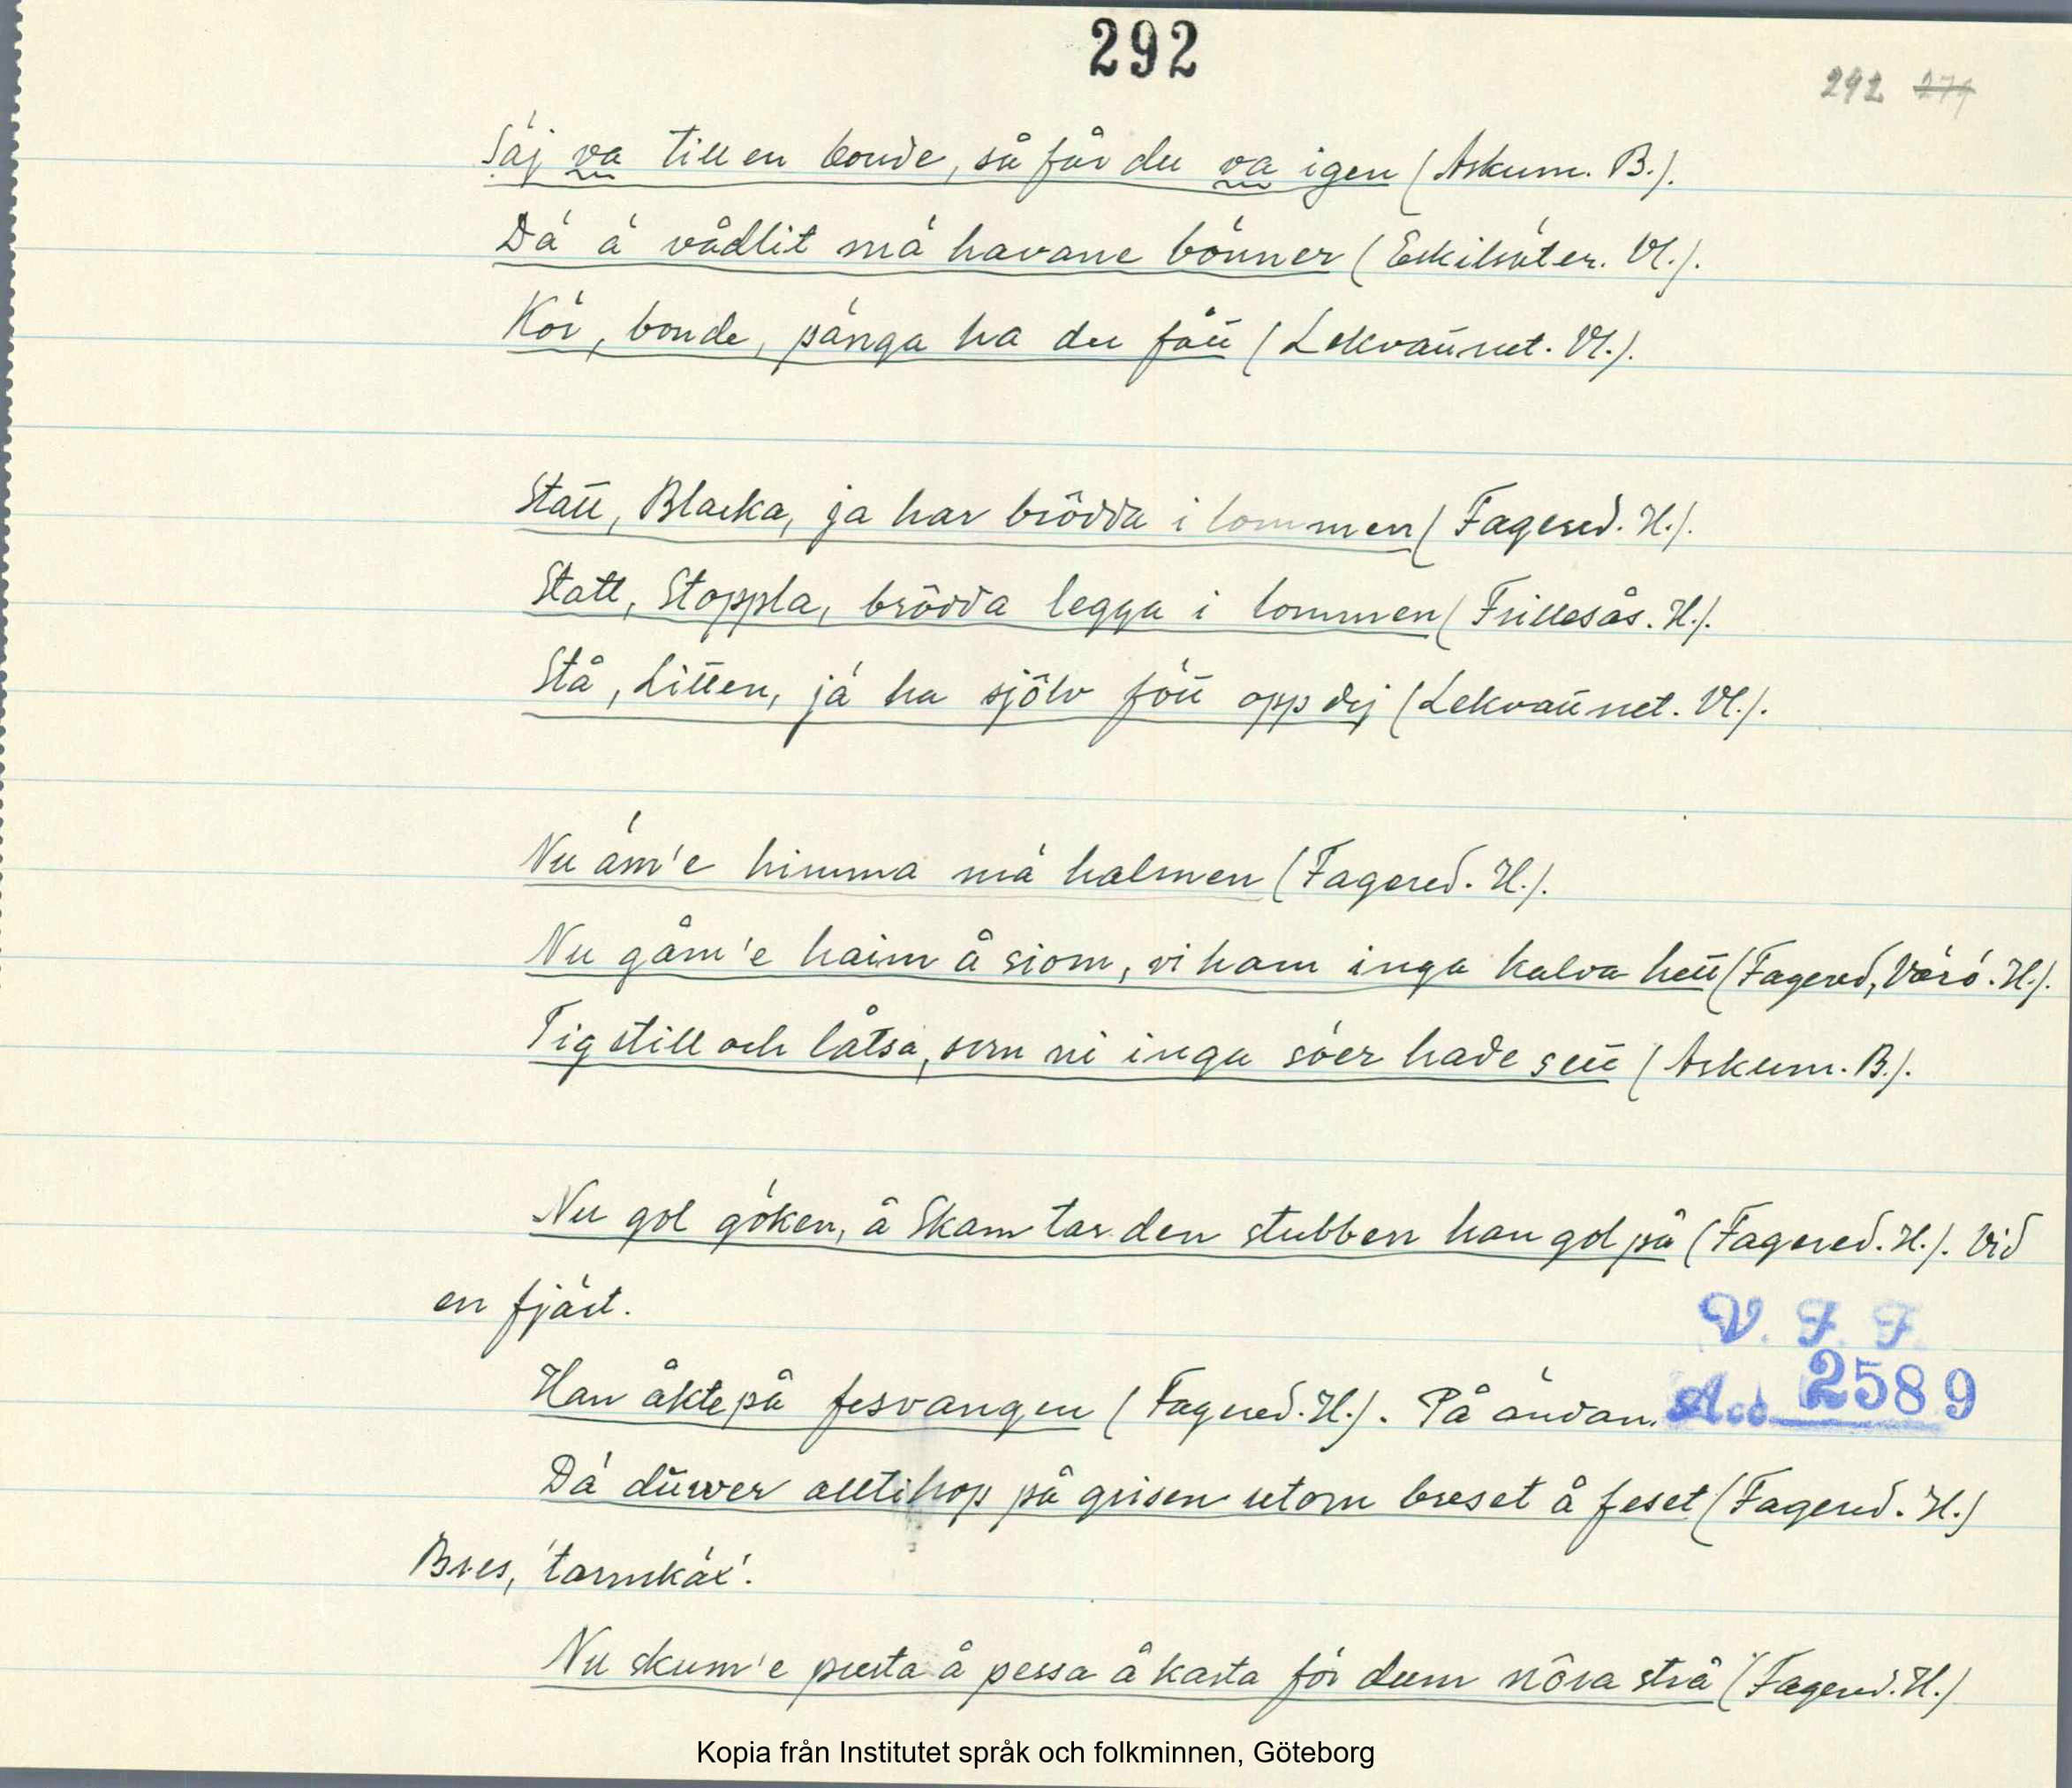 292
292 279
Säj va till en bonde, så får du va igen (Askum. B.).
Dä ä vådlit mä havane bönner (Eskilsäter. Vl.).
Kör, bonde, pänga ha du fått (Lekvattnet. Vl.).
Statt, Blacka, ja har brödda i lommen (Fagered. H.).
Statt, Stoppla, brödda legga i lommen (Frillesås. H.).
Stå, Litten, jä ha sjölv fött opp dej (Lekvattnet. Vl.).
Nu äm'e himma mä halmen (Fagered. H.).
Nu gåm'e haim å siom, vi ham inga kalva hett (Fagered, Värö. H.).
Tig still och låtsa, som ni inga söer hade sett (Askum. B.).
Nu gol göken, å Skam tar den stubben han gol på (Fagered. H.). Vid
en fjärt.
V. F. F.
Han åkte på fesvangen (Fagered. H.). På ändan.
Acc. 2589
Dä duwer alltihop på grisen utom breset å feset (Fagered. H.)
Bres, 'tarmkäx'.
Nu skum'e pusta å pessa å kasta för dum nôra strå (Fagered. H.)
Kopia från Institutet språk och folkminnen, Göteborg